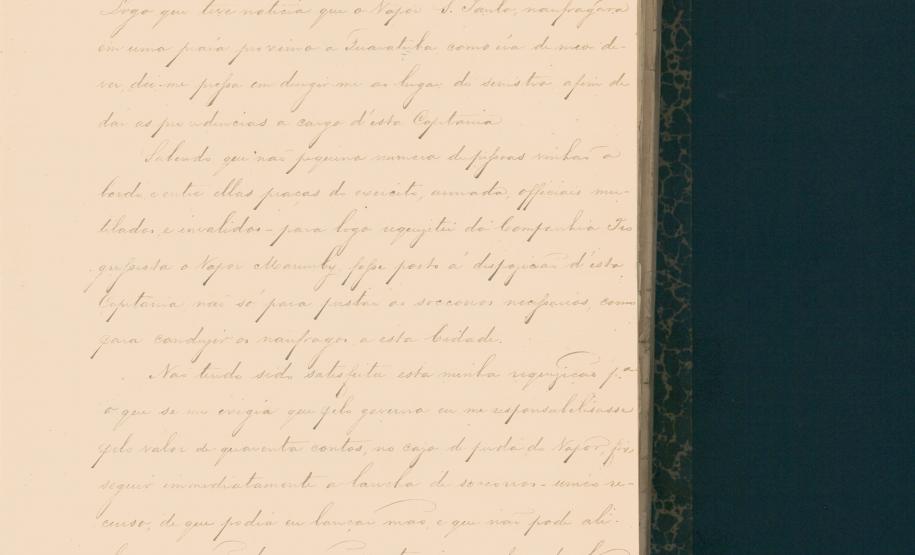 Logo que tive noticia que o Vapor S. Santo, naufragára
em uma praia proxima a Guaratuba como éra de meo de-
ver, dei-me pressa em dirigir-me ao lugar do senistro afim de
dar as providencias a cargo d'esta Capitania
Sabendo que não pequeno numero de pessoas vinhão a
bordo e entre ellas praças do exercito, armada, officiais mu-
tilados, e invalidos - para logo requizitei da Companhia Pro
gressista o Vapor Marumby, fosse posto á dispozição d'esta
Capitania não só para prestar os soccorros necessarios, como
para conduzir os naufragos a esta Cidade.
Não tendo sido satisfeita esta minha requizição p.ª
o que se me exigia que pelo governo eu me responsabilisasse
pelo valor de quarenta contos, no cazo de perda do Vapor, fiz
seguir immediatamente a lancha de soccorros - unico re-
curso, de que podia eu lançar mão, e que não pode ali-